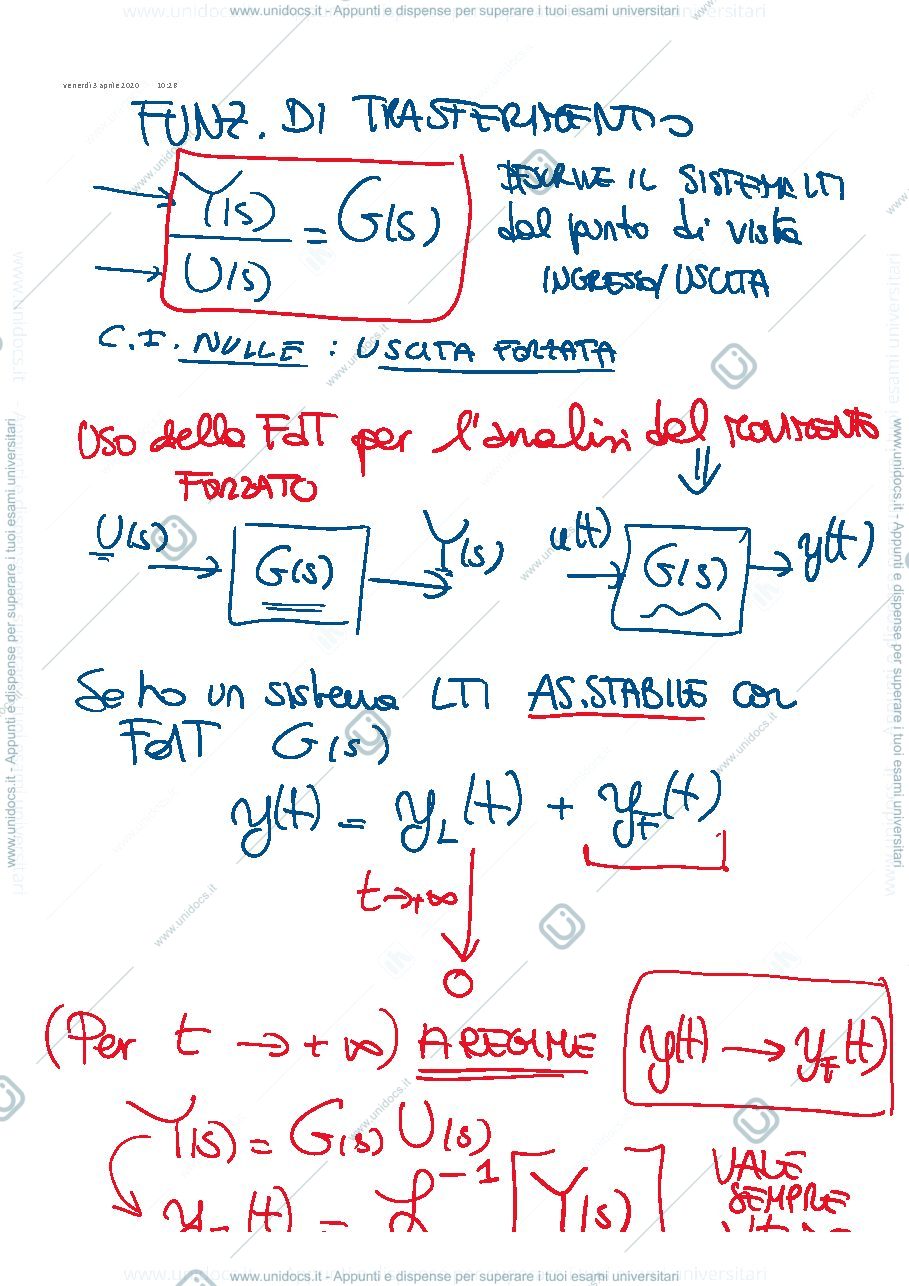 www.unidocs.it - Appunti e dispense per superare i tuoi esami universitari
venerdì 3 aprile 2020 10:28
FUNZ. DI TRASFERIMENTO
Y(s) / U(s) = G(s)
DESCRIVE IL SISTEMA LTI
dal punto di vista
INGRESSO/USCITA
C.I. NULLE : USCITA FORZATA
USO della FdT per l'analisi del MOVIMENTO
FORZATO
⇓
U(s) → G(s) → Y(s) u(t) → G(s) → y(t)
Se ho un sistema LTI AS.STABILE con
FdT G(s)
y(t) = y_L(t) + y_F(t)
t→+∞
0
(Per t → +∞) A REGIME y(t) → y_F(t)
Y(s) = G(s) U(s)
VALE
SEMPRE
y_F(t) = ℒ^-1 [Y(s)]
www.unidocs.it - Appunti e dispense per superare i tuoi esami universitari